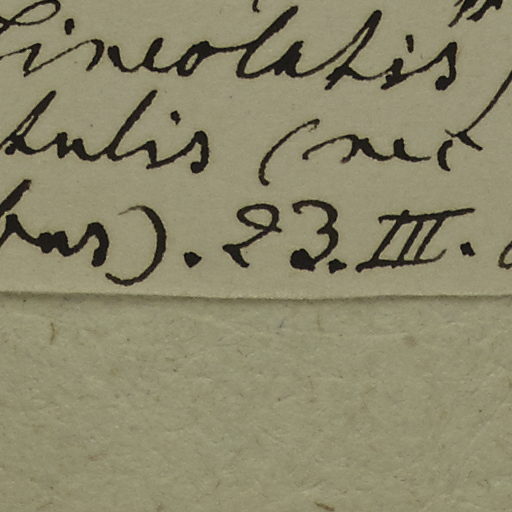 lineolatis"
tulis (nec
bus). 23.III.